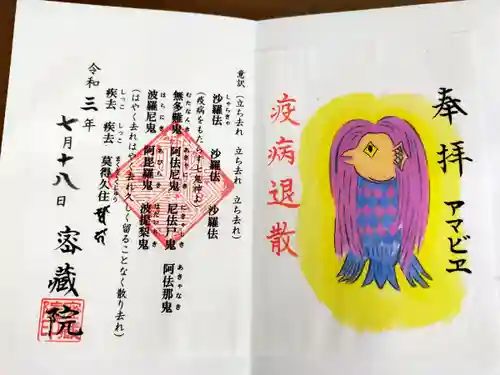 奉拝
アマビヱ
疫病退散
意訳（立ち去れ 立ち去れ 立ち去れ）
しゃらきゃ
沙羅佉 沙羅佉 沙羅佉
（疫病をもたらす七鬼神よ）
むたなんき あきゃにき にきゃしき あきゃなき
無多難鬼 阿佉尼鬼 尼佉尸鬼 阿佉那鬼
はらにき あびらき はだいりき
波羅尼鬼 阿毘羅鬼 波提梨鬼
（はやく去れはやく去れ久しく留ることなく散り去れ）
しっこ しっこ まくとくくじゅう
疾去 疾去 莫得久住
令和三年
七月十八日
密蔵院